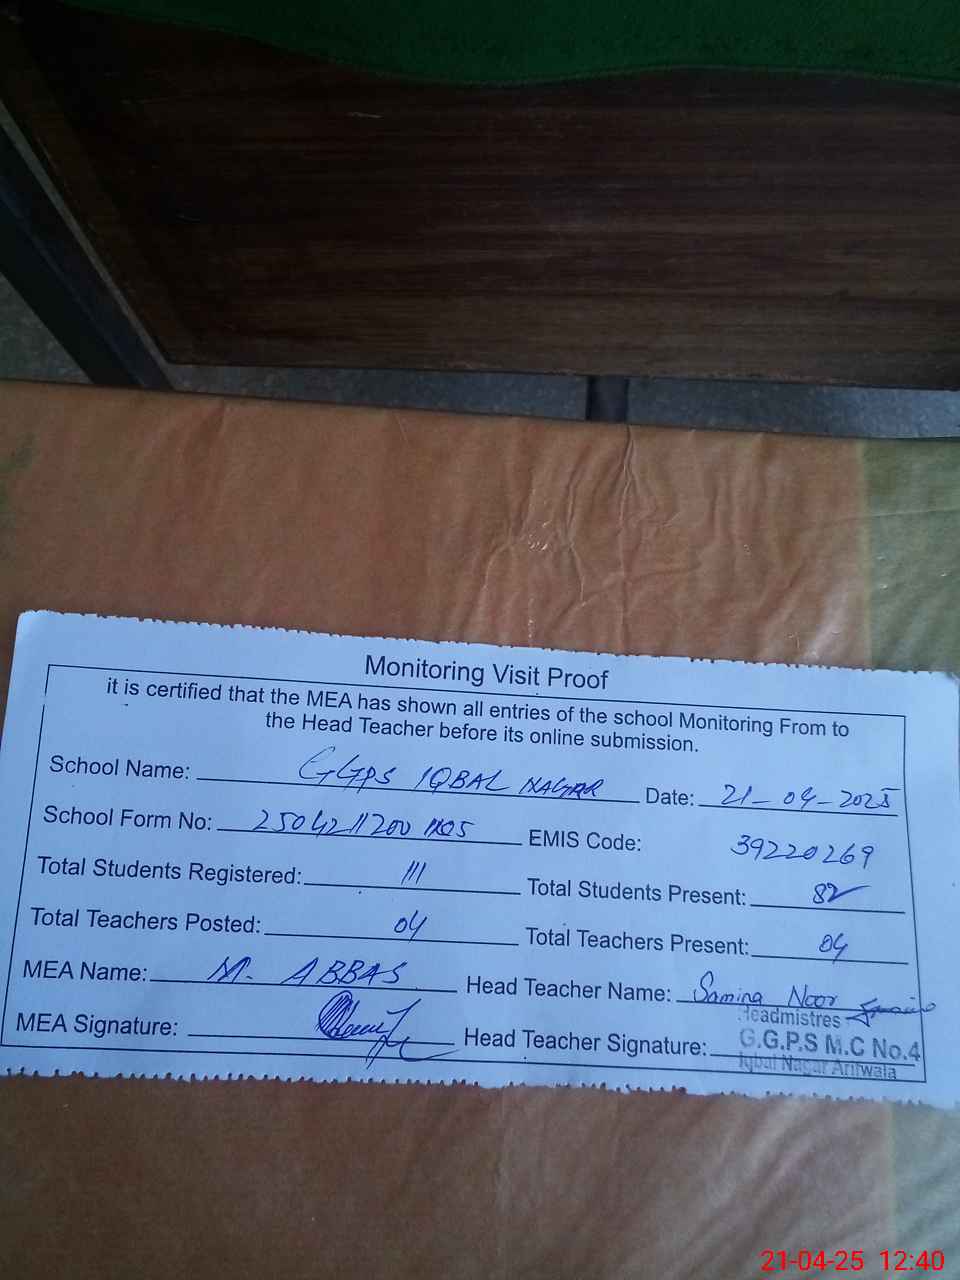 Monitoring Visit Proof
it is certified that the MEA has shown all entries of the school Monitoring From to
the Head Teacher before its online submission.
School Name: GGPS IQBAL NAGAR Date: 21-04-2025
School Form No: EMIS Code: 39220269
Total Students Registered: 111 Total Students Present: 82
Total Teachers Posted: 04 Total Teachers Present: 04
MEA Name: M. ABBAS Head Teacher Name: Samina Noor
Headmistres
MEA Signature: Head Teacher Signature: G.G.P.S M.C No.4
Iqbal Nagar Arifwala
21-04-25 12:40